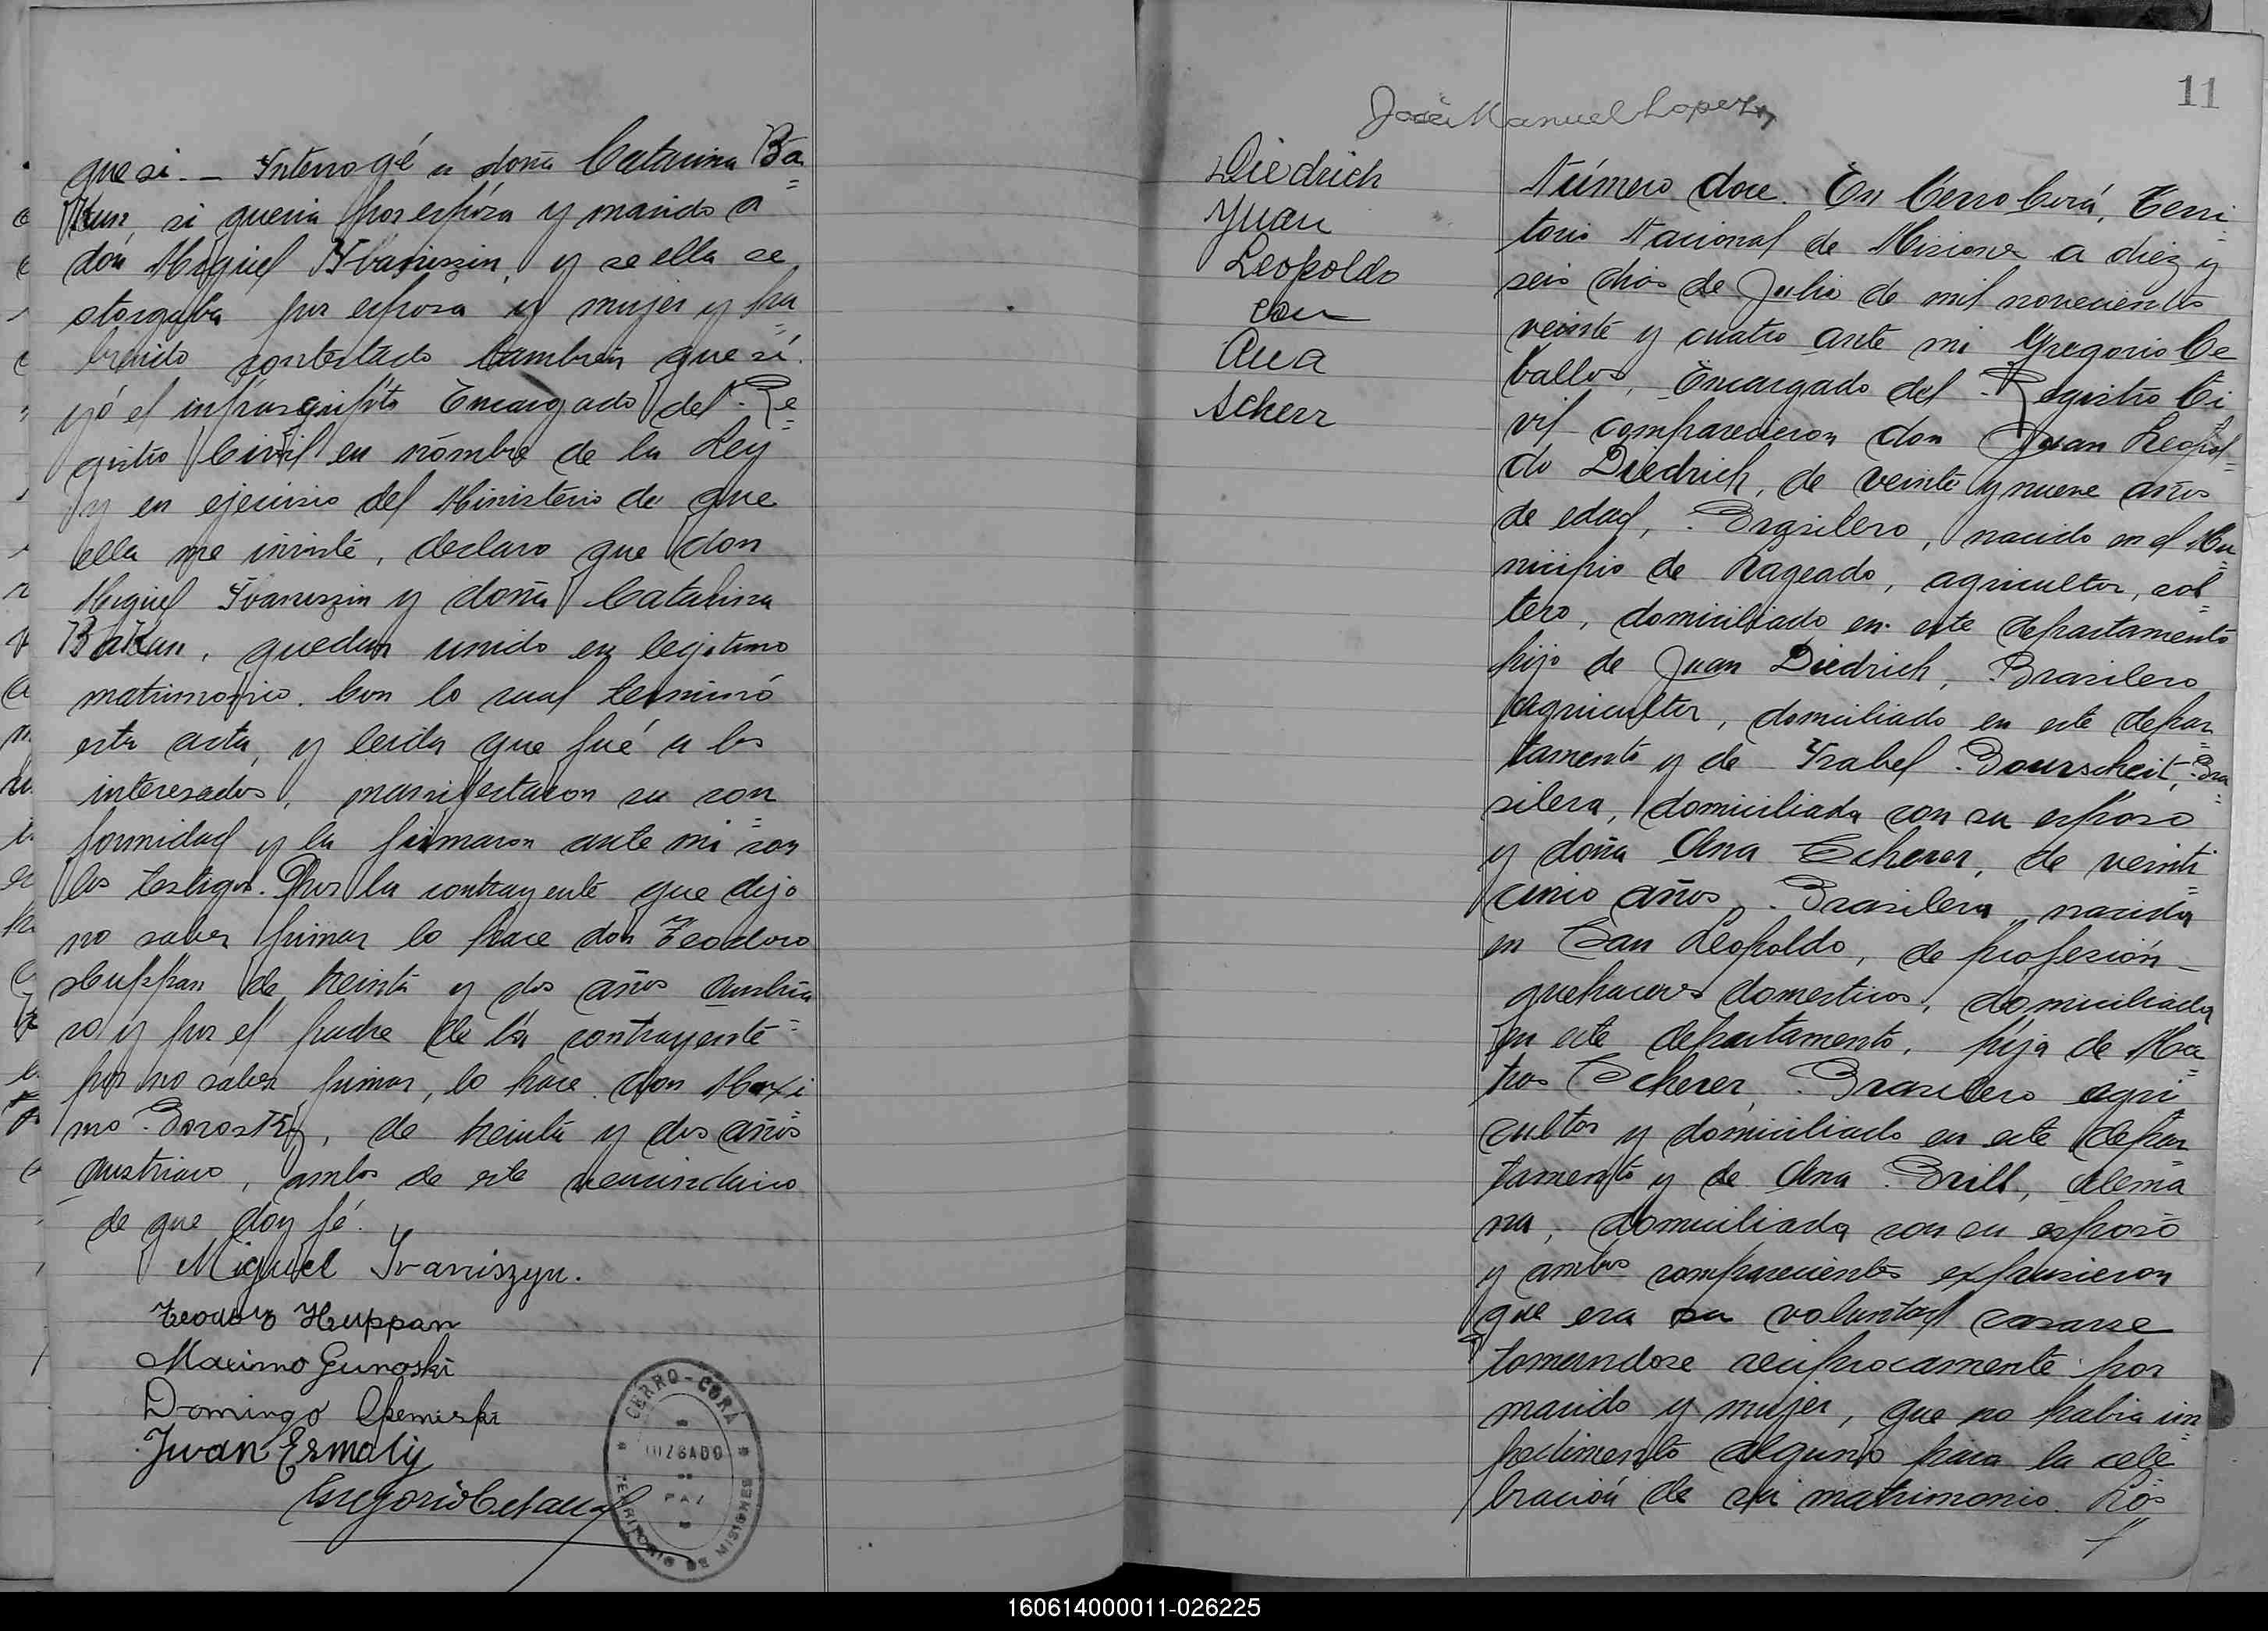 que si. — Interrogé a doña Catarina Ba=
kun, si queria por espóso y marido a
don Miguel Ivaniszin, y se ella se
otorgaba por esposa y mujer y ha=
biendo contestado tambien que sí.
yó el infrascripto Encargado del Re=
gistro Civil en nómbre de la Ley
y en ejercisio del Ministerio de que
ella me inviste, declaro que don
Miguel Ivaniszin y doña Catarina
Bakun, quedan unido en legitimo
matrimonio. Con lo cual terminó
esta acta, y leida que fué a los
interesados, manifestaron su con=
formidad y la firmaron ante mi con
los testigos. Por la contrayente que dijo
no saber firmar lo hace don Teodoro
Huppan de treinta y dos años Austria
co y por el padre de la contrayente=
por no saber firmar, lo hace don Maxi=
mo, de treinta y dos años
Austriaco, ambos de este vecindario
de que doy fé.
Miguel Ivaniszyn.
Teodoro Huppan
Maximo Gunoski
Domingo
Juan Esmaly
Gregorio Ceballos
CERRO-CORÁ
JUZGADO
DE
PAZ
TERRITORIO DE MISIONES
11
José Manuel Lopez
Diedrich
Juan
Leopoldo
con
Ana
Scherr
Número doce. En Cerro Corá, Terri=
torio Nacional de Misiones a diez y
seis dias de Julio de mil novecientos
veinte y cuatro ante mi Gregorio Ce
ballos, Encargado del Registro Ci
vil comparecieron don Juan Leopol=
do Diedrich, de veinte y nueve años
de edad, Brasilero, nacido en el Mu=
nicipio de Lageado, agricultor, sol=
tero, domiciliado en este departamento
hijo de Juan Diedrich, Brasilero
agricultor, domiciliado en este depar=
tamento y de Isabel Bourscheit, Bra=
silera, domiciliada con su esposo
y doña Ana Scherer, de veinti=
cinco años, Brasilera, nacida
en San Leopoldo, de profesión—
quehaceres domesticos, domiciliada
en este departamento, hija de Ma=
tias Scherer, Brasilero agri=
cultor y domiciliado en este depar=
tamento y de Ana Brill, alema=
na, domiciliada con su esposo
y ambos comparecientes expusieron
que era su voluntad casarse
tomandose reciprocamente por
marido y mujer, que no habia im=
pedimento alguno para la cele=
bración de su matrimonio. Los
160614000011-026225